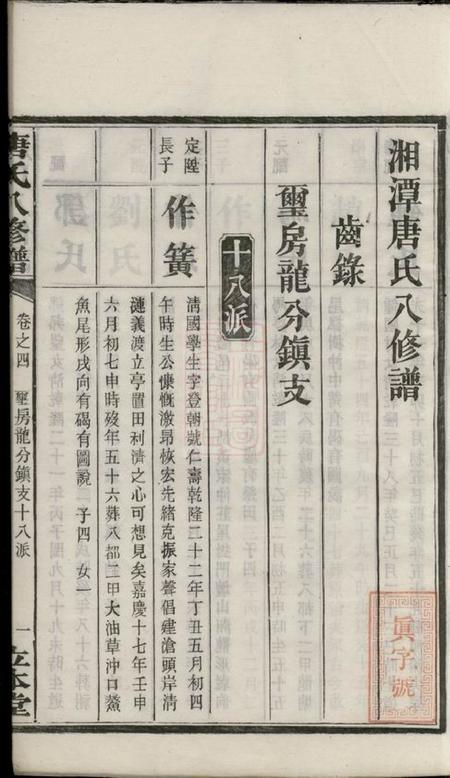 湘潭唐氏八修譜
齒錄
璽房龍分鎮支
十八派
定陞長子
作簧
清國學生字登朝號仁壽乾隆二十二年丁丑五月初四
午時生公慷慨激昂恢宏先緒克振家聲倡建滄頭岸清
漣義渡立亭置田利濟之心可想見矣嘉慶十七年壬申
六月初七申時歿年五十六葬八都二甲大油草沖口鰲
魚尾形戌向有碣有圖說 子四 女一
唐氏八修譜
卷之四 璽房龍分鎮支十八派
一
立本堂
真字號